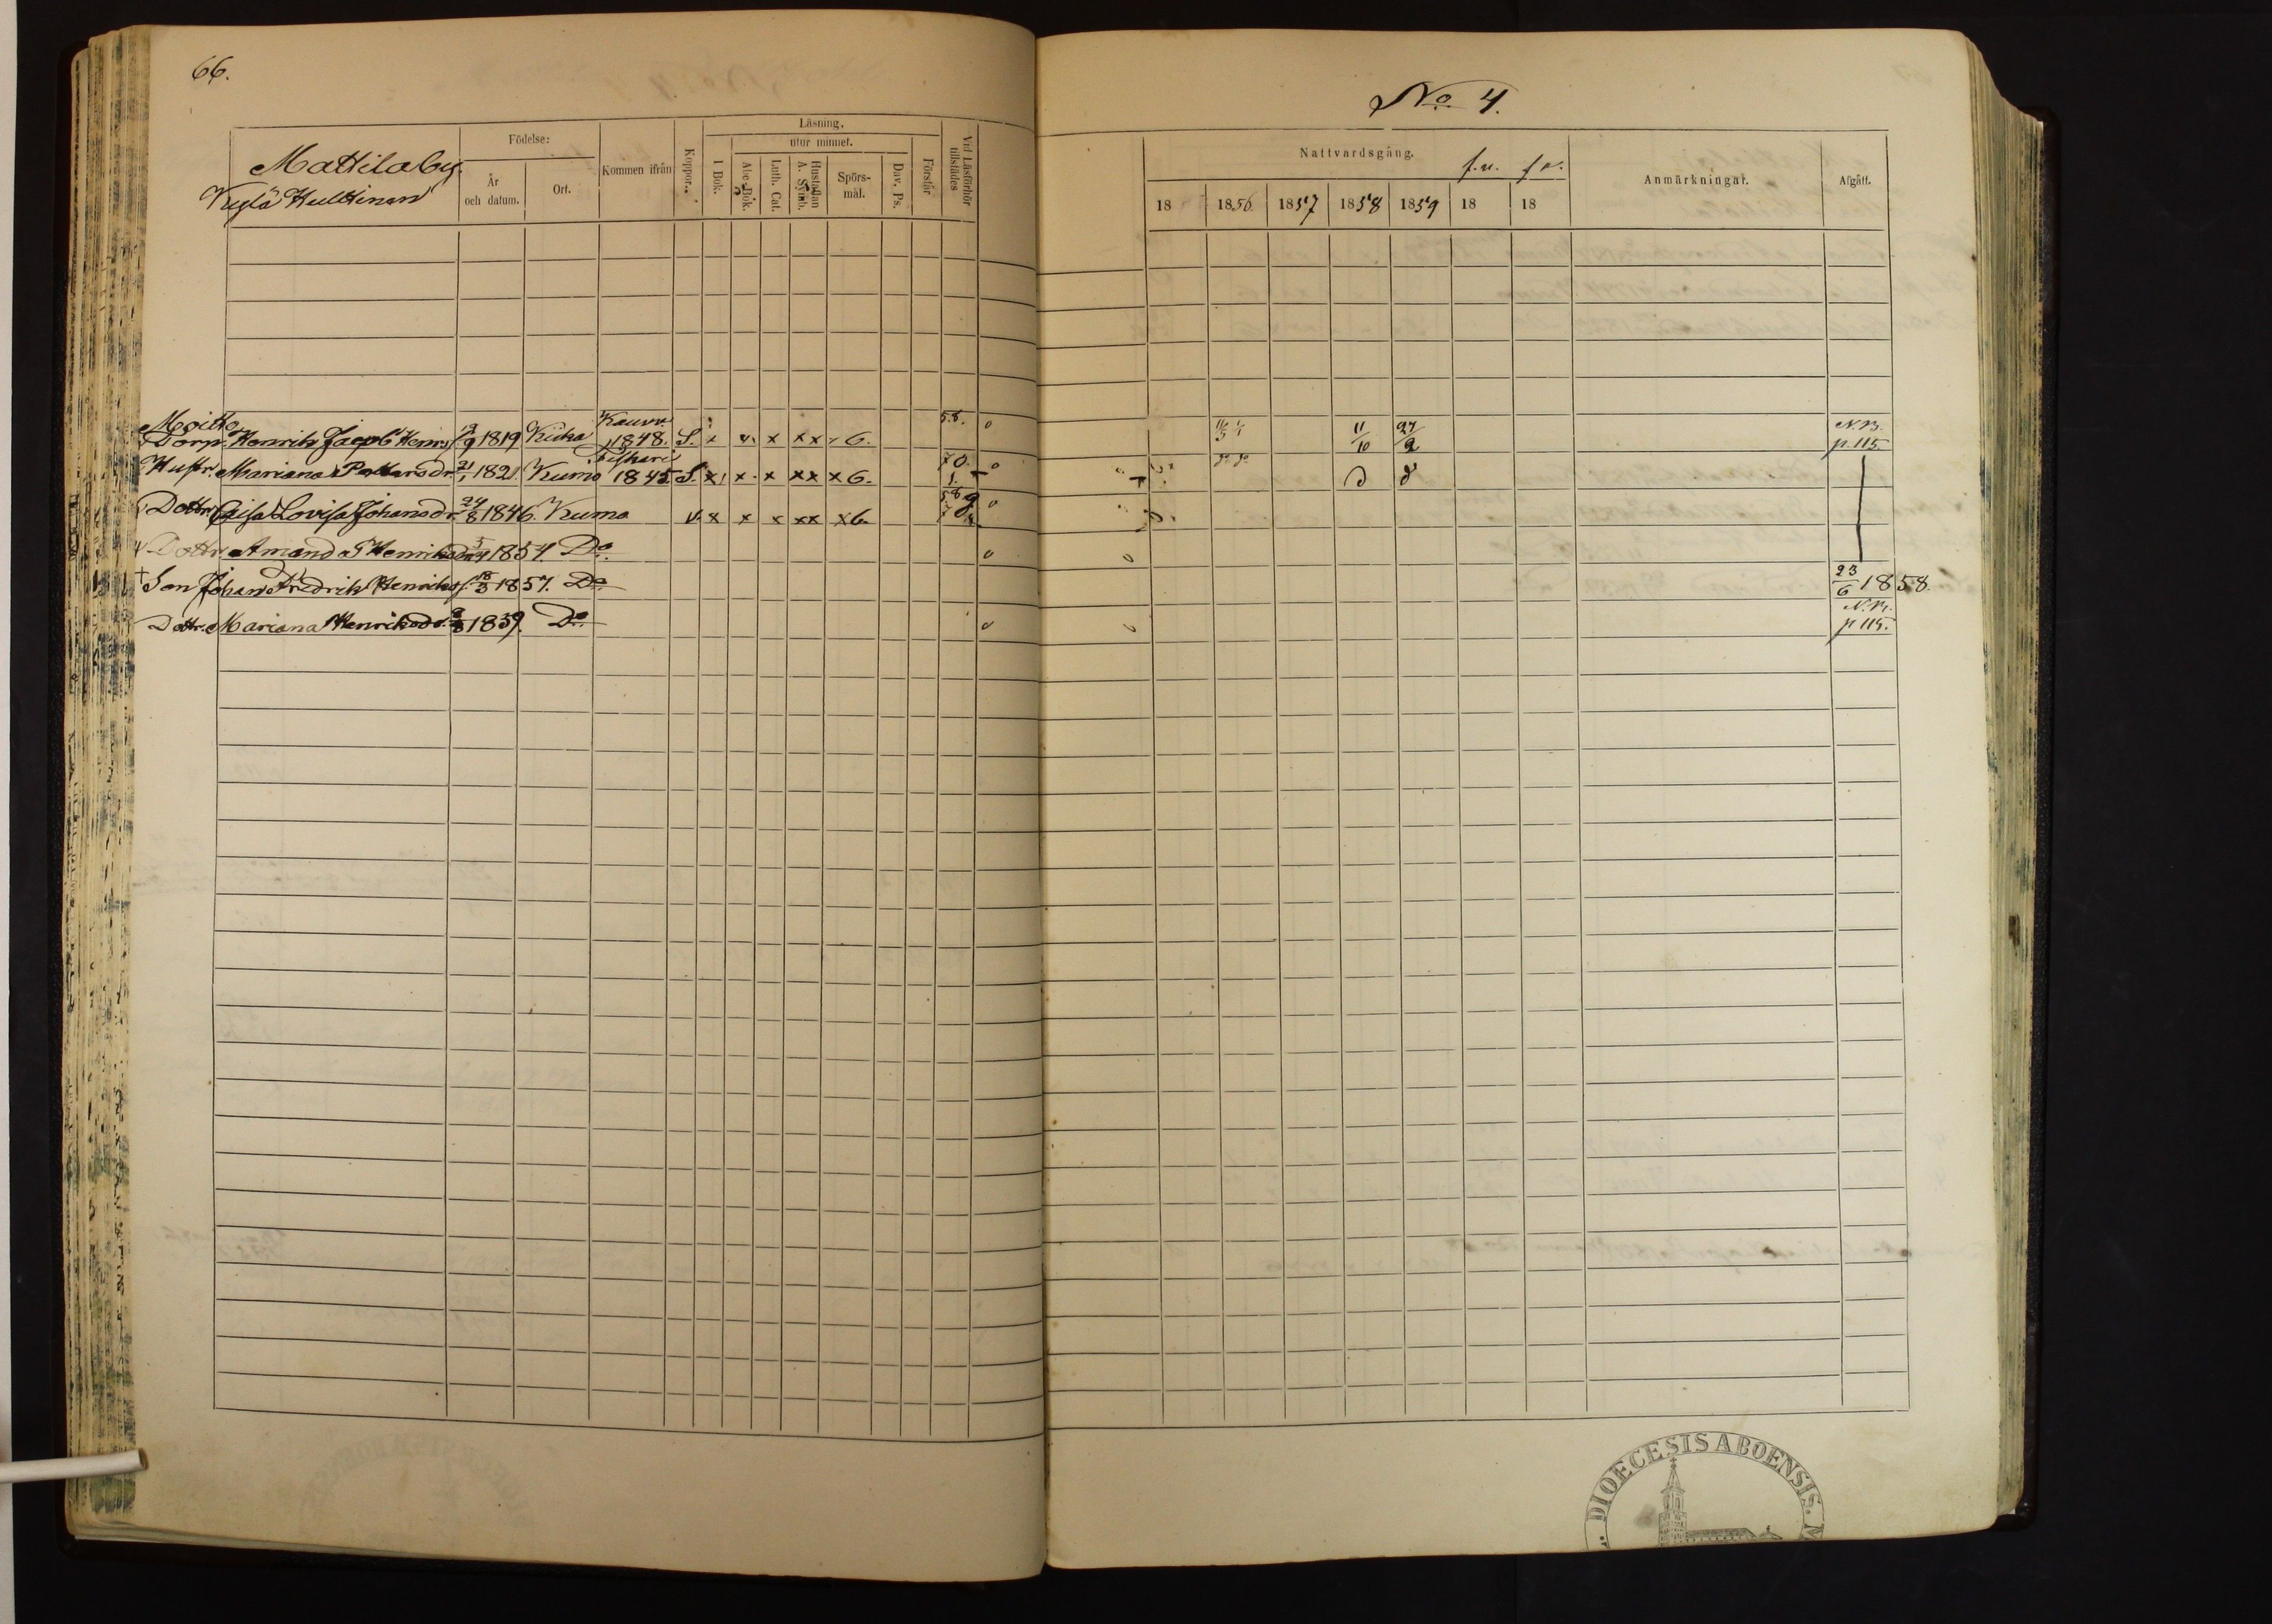 66.
No 4.
Mattilaby.
Kylä Hultinan
Födelse:
År och datum.
Ort.
Kommen ifrån
Koppor.
Läsning.
utur minnet.
I Bok.
Abc-Bok.
Luth. Cat.
Hustaflan A. Symb.
Spörsmål.
Dav. Ps.
Förstår
Vid Läsförhör tillstädes
Nattvardsgång. f.u. f.v.
18 1856 1857 1858 1859 18 18
Anmärkningar.
Afgått.
Moitto
Torp. Henrik Jacob Henriks 9 1819 Kiuka Kauv. 1848. S. x x x x x 6. 58. o 11/10 27/2 N.B. p. 115.
Hustr. Mariana Pettersdr. 21/1 1821. Kumo 1845. S. x x x xx x 6. o
Dottr. Lovisa Johansdr. 24/8 1846. Kumo x x x xx x6. o
Dottr. Amanda Henriksdr 1854 Do o o
+ Son Johan Fredrik Henriks. 18/3 1857. Do 23/6 1858.
Dottr. Mariana Henriksdr. 1859. Do o o N.B. p 115.
DIOECESIS ABOENSIS.